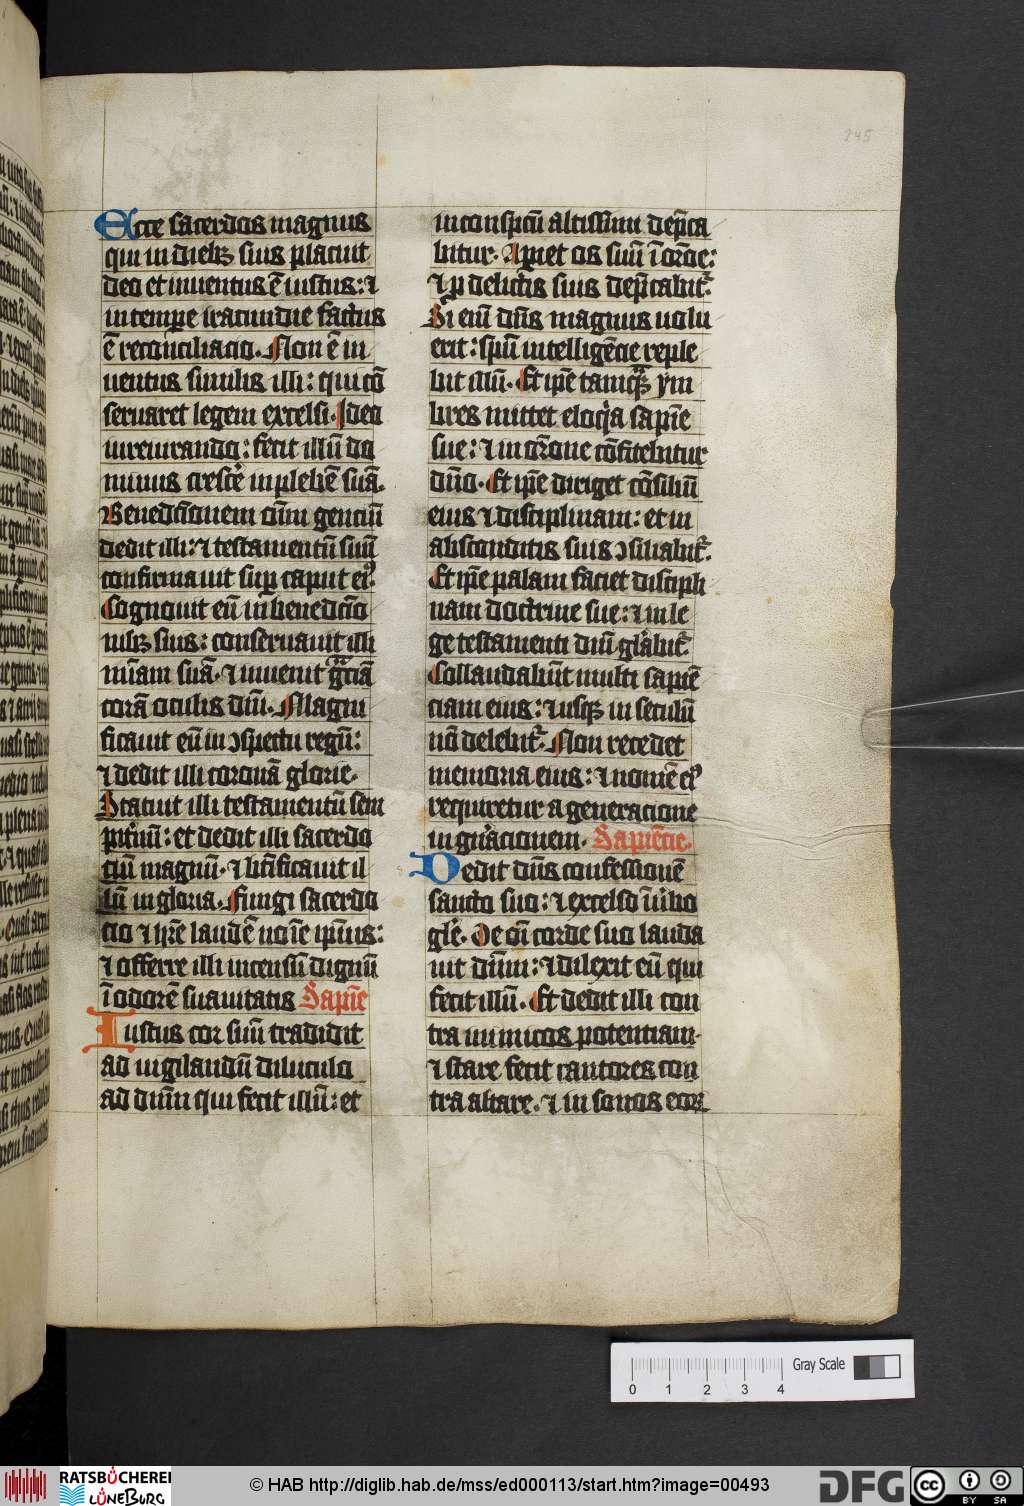 245
Ecce sacerdos magnus
qui in diebꝫ suis placuit
deo et inuentus ē iustus: ⁊
in tempore iracundie factus
ē reconciliacio. Non ē in
uentus similis illi: qui cō
seruaret legem excelsi. Ideo
iureiurando: fecit illū do
minus crescere in plebem suā.
Benedictionem omniū genciū
dedit illi: ⁊ testamentū suū
confirmauit suꝑ caput eiꝰ
Cognouit eū in benedictio
nibꝫ suis: conseruauit illi
miam̄ suā. ⁊ inuenit gᷓciā
corā oculis dnī. Magni
ficauit eū in ↄspectu regū:
⁊ dedit illi coronā glorie.
Statuit illi testamentū sem
piternū: et dedit illi sacerdo
ciū magnū. ⁊ btīficauit il
lū in gloria. Fungi sacerdo
cio ⁊ hr̄e laudē noīe ipīus:
⁊ offerre illi incensū dignū
ī odorē suauitatis Sapiīe
Iustus cor suū tradidit
ad uigilandū diluculo
ad dnm̄ qui fecit illū: et
in conspectu altissimi dep̄ca
bitur. Aperiet os suū ī oror̄e:
⁊ ꝓ delictis suis dep̄cabitᷣ.
Si enī dn̄s magnus uolu
erit: spū intelligēcie reple
bit illū. Et ipē tamqᷓꝫ ym
bres mittet eloqͥa sapīe
sue: ⁊ in or̄one cōfitebitur
dn̄o. Et ipē diriget cōsiliū
eius ⁊ disciplinam: et in
absconditis suis ↄsiliabitᷣ.
Et ipē palam faciet discipli
nam doctrine sue: ⁊ in le
ge testamenti dnī gl̄abitᷣ.
Collaudabūt multi sapiē
ciam eius: ⁊ usqꝫ in seculū
nō delebitᷣ. Non recedet
memoria eius: ⁊ nomē eiꝰ
requiretur a generacione
in gn̄acionem. Sapiēcie.
Dedit dn̄s confessionē
sancto suo: ⁊ excelso ī uͤbo
glē. De oī corde suo lauda
uit dnm̄: ⁊ dilexit eū qui
fecit illū. Et dedit illi con
tra inimicos potentiam.
⁊ stare fecit cantores con
tra altare. ⁊ in sonos eoꝝ
Gray Scale
0 1 2 3 4
RATSBÜCHEREI
LÜNEBURG
© HAB http://diglib.hab.de/mss/ed000113/start.htm?image=00493
DFG
cc BY SA